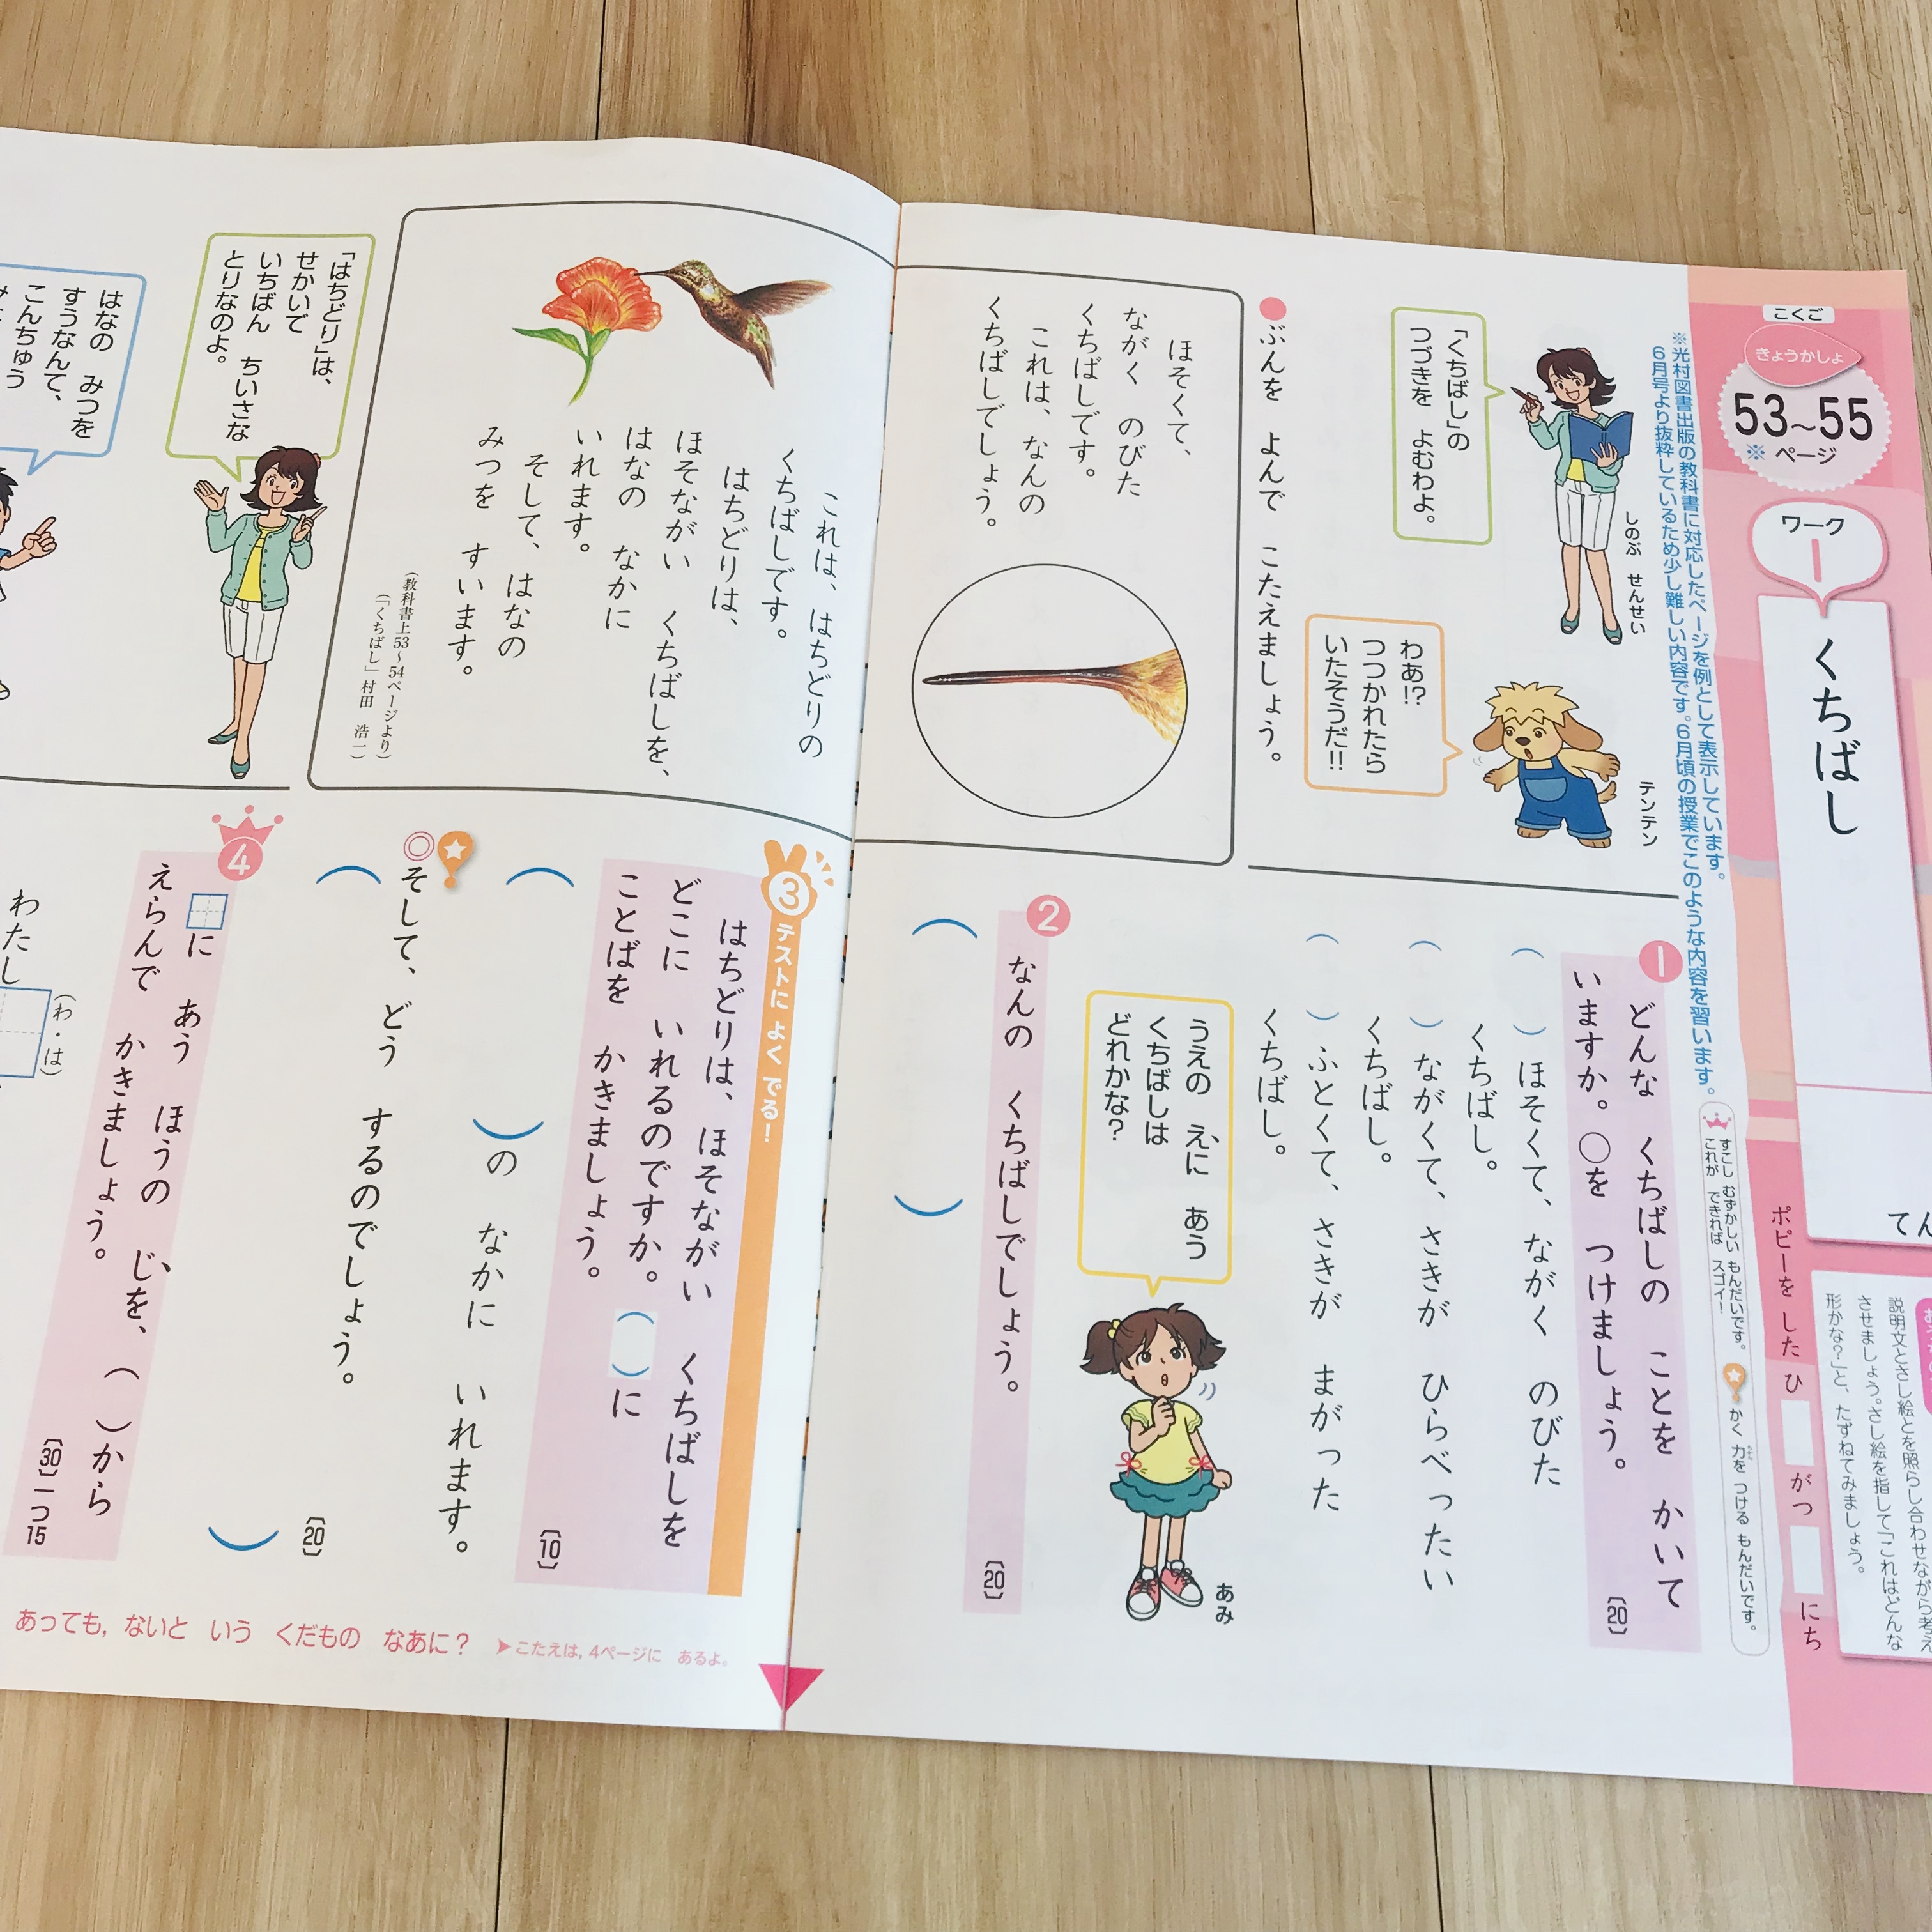 こくご
きょうかしょ
53〜55
※ページ
ワーク
1
くちばし
てん
ポピーを した ひ がつ にち
説明文とさし絵とを照らし合わせながら考え
させましょう。さし絵を指して「これはどんな
形かな?」と、たずねてみましょう。
※光村図書出版の教科書に対応したページを例として表示しています。
6月号より抜粋しているため少し難しい内容です。6月頃の授業でこのような内容を習います。
すこし むずかしい もんだいです。
これが できれば スゴイ!
かく 力を つける もんだいです。
しのぶ せんせい
「くちばし」の
つづきを よむわよ。
テンテン
わあ!?
つつかれたら
いたそうだ!!
ぶんを よんで こたえましょう。
ほそくて、
ながく のびた
くちばしです。
これは、なんの
くちばしでしょう。
これは、はちどりの
くちばしです。
はちどりは、
ほそながい くちばしを、
はなの なかに
いれます。
そして、はなの
みつを すいます。
(教科書上53〜54ページより)
(「くちばし」村田 浩一)
「はちどり」は、
せかいで
いちばん ちいさな
とりなのよ。
はなの みつを
すうなんて、
こんちゅう
1
どんな くちばしの ことを かいて
いますか。○を つけましょう。
[20]
( )ほそくて、ながく のびた
くちばし。
( )ながくて、さきが ひらべったい
くちばし。
( )ふとくて、さきが まがった
くちばし。
うえの えに あう
くちばしは
どれかな?
あみ
2
なんの くちばしでしょう。
[20]
( )
3
テストに よく でる!
はちどりは、ほそながい くちばしを
どこに いれるのですか。( )に
ことばを かきましょう。
[10]
( )の なかに いれます。
◎そして、どう するのでしょう。
[20]
( )
4
□に あう ほうの じを、( )から
えらんで かきましょう。
[30]一つ15
(わ・は)
わたし
あっても,ないと いう くだもの なあに?
▶こたえは,4ページに あるよ。